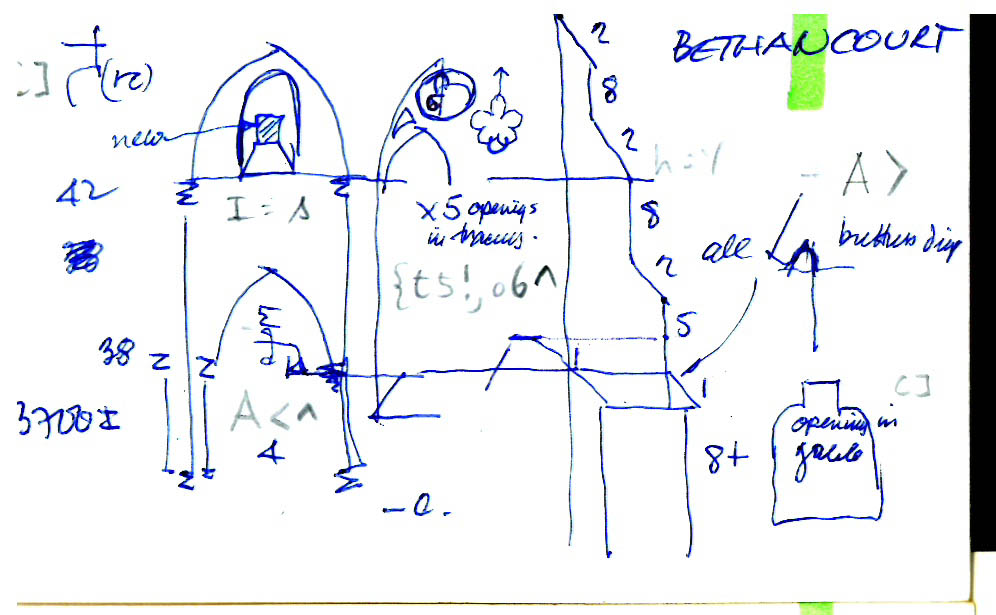 BETHANCOURT
C] (rc)
2
8
new
2
h=Y
42
I = s
x5 openings
in tracery.
8
- A >
all
buttress
{t5!,o6^
2
5
38
1
1
C]
3700±
A<^
4
8+
opening in
gable
-a.